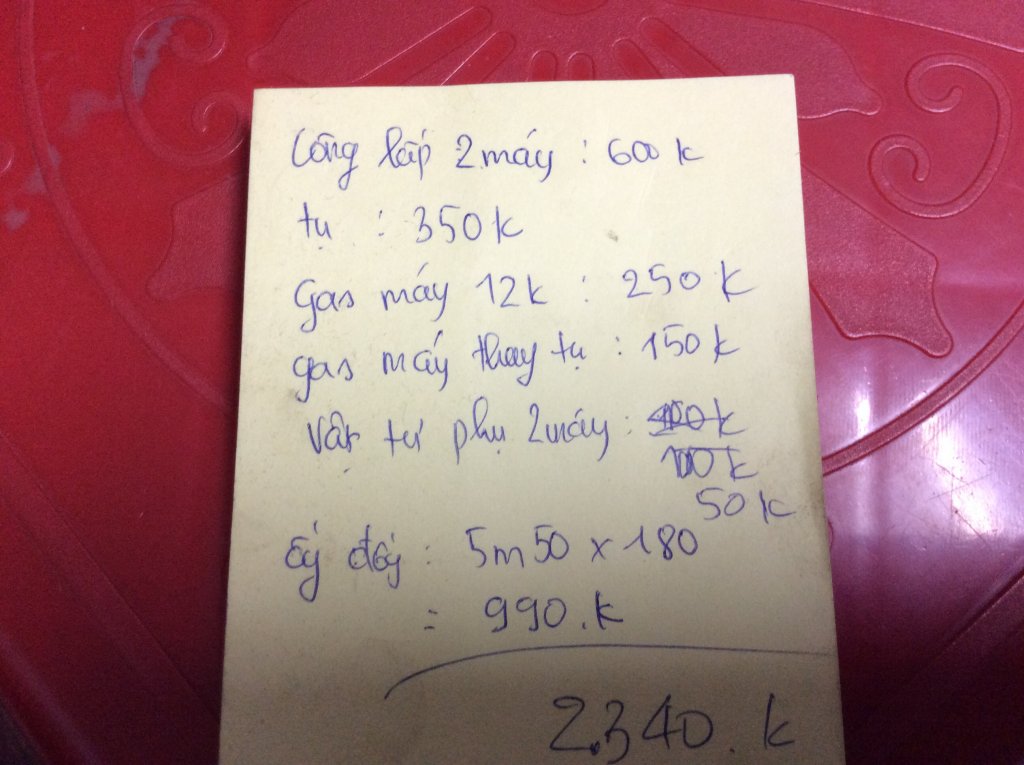 Công lắp 2 máy : 600 k
tụ : 350 k
Gas máy 12k : 250 k
gas máy thay tụ : 150 k
Vật tư phụ 2 máy :
100 k
50 k
ống đây : 5m50 x 180
= 990.k
2.340.k